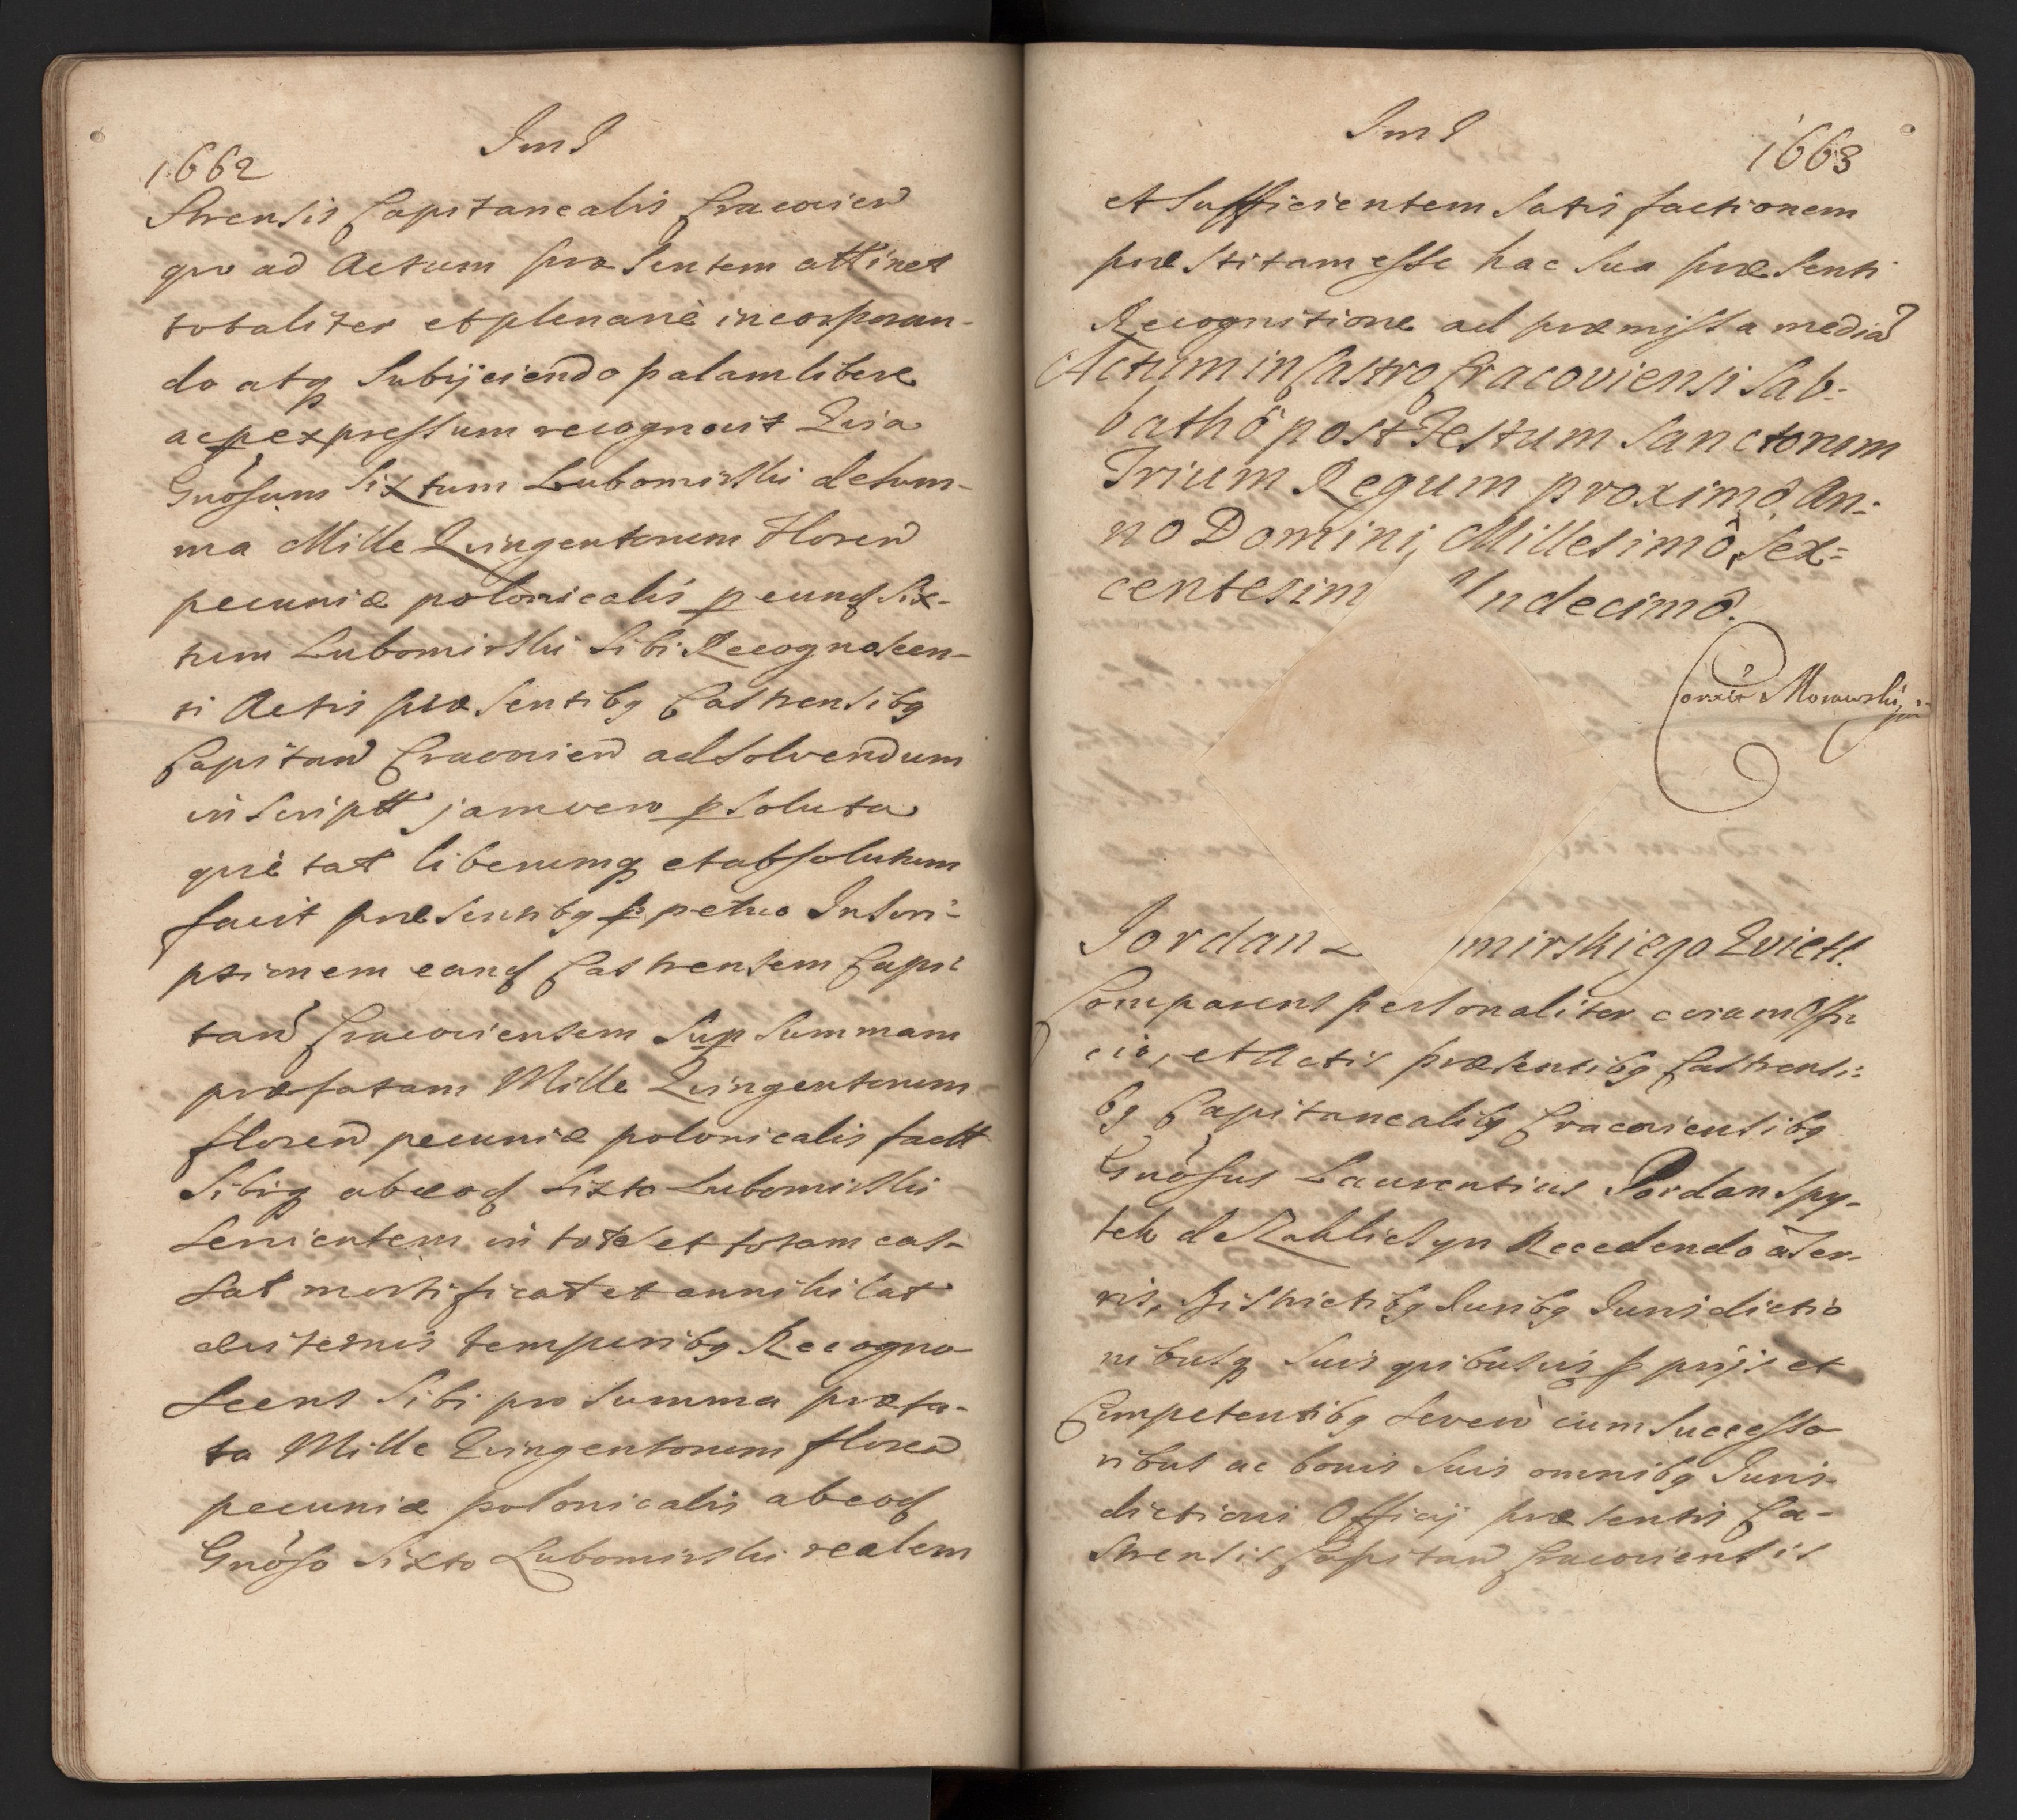 1662
JmJ
strensis Capitanealis Cracovien
quo ad Actum præsentem attinet
totaliter et plenariè incorporan-
do atq subijciendo palam libere
ac p expressum recognovit Quia
Gnosum Sixtum Lubomirski de sum-
ma Mille Quingentorum Floren
pecuniæ polonicalis p eund Six-
tum Lubomirski sibi Recognoscen-
ti Actis præsentibq Castrensibq
Capitan Cracovien ad solvendum
inscript jam vero p soluta
quietat liberumq et absolutum
facit præsentibq p petuo Inscri-
ptionem eand Castrensem Capi-
tan Cracoviensem sup summam
præfatam Mille Quingentorum
floren pecuniæ polonicalis fact
sibiq ab eod Sixto Lubomirski
servientem in toto et totam cas-
sat mortificat et annihilat
æviternis temporibq Recogno-
scens sibi pro summa præfa-
ta Mille Quingentorum floren
pecuniæ polonicalis ab eod
Gnoso Sixto Lubomirski realem
JmJ
1663
et sufficientem satis factionem
præstitam esse hac sua præsenti
Recognitione ad præmissa media
Actum in Castro Cracoviensi Sab-
bathô post Festum Sanctorum
Trium Regum proximô An-
no Domini, Millesimô, Sex=
centesim Undecimô.
Correx Morawskij
Jordan L mirskiego Quiett.
Comparens personaliter coram Offi-
cio, et Actis præsentibq Castrensi-
bq Capitanealibq Cracoviensibq
Gnosus Laurentius Jordan Spy-
tek de Zakliczyn Recedendo à Ter-
ris, Districtibq Juribq Jurisdictio
nibusq suis quibusvis p prijs et
Competentibq seven cum successo-
ribus ac bonis suis omnibq Juris-
dictioni Officij præsentis Ca-
strensis Capitan Cracoviensis